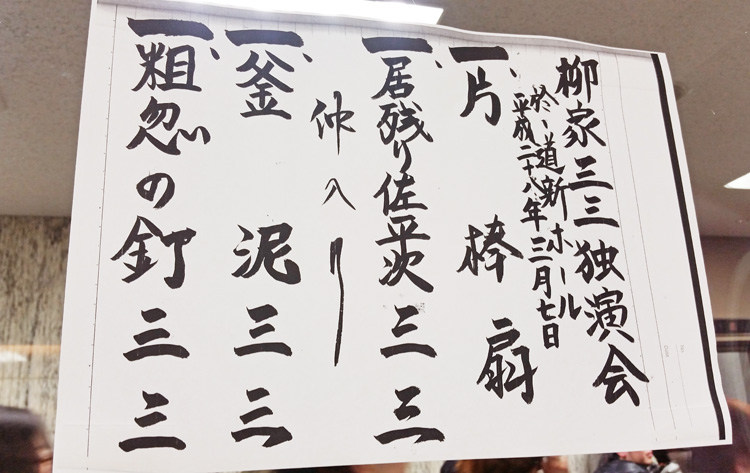 柳家三三独演会
於、道新ホール
平成二十八年三月七日
一、片棒 扇
一、居残り佐平次 三三
仲入り
一、釜泥 三三
一、粗忽の釘 三三